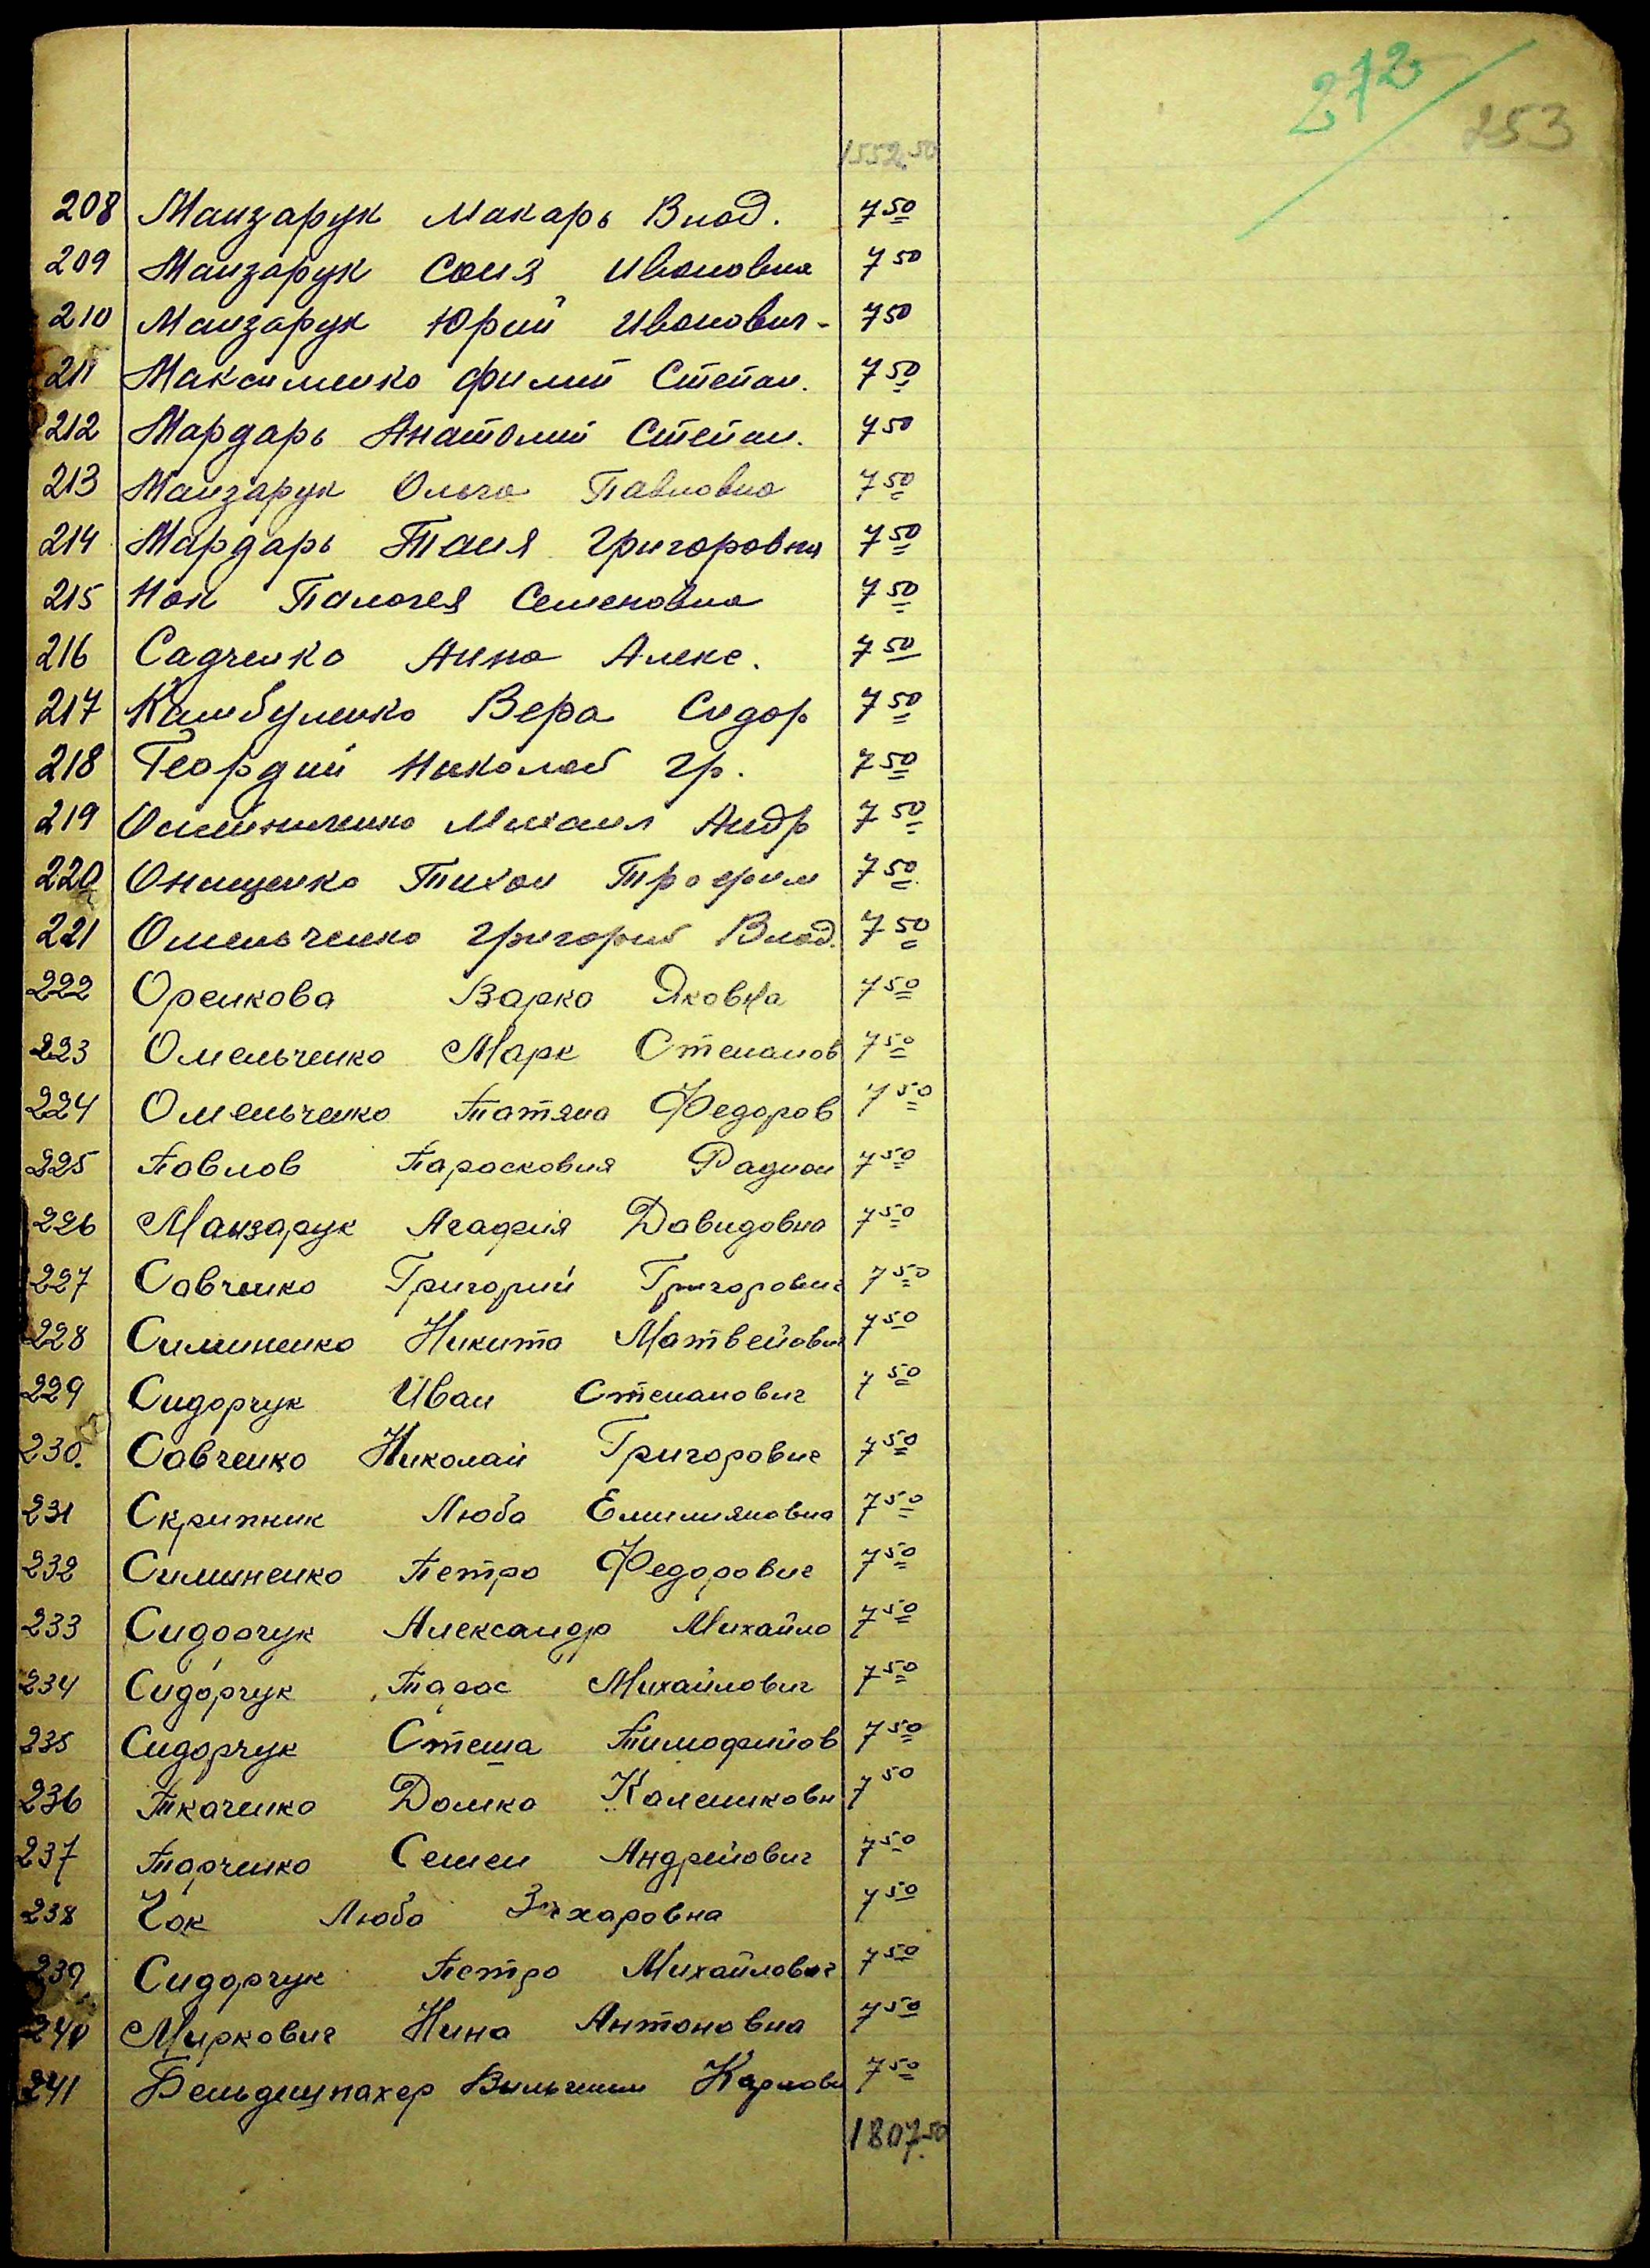 272
253
1552.50
208 Манзарук Макарь Влад. 7 50
209 Манзарук Соня Ивановна 7 50
210 Манзарук Юрий Иванович- 7 50
211 Максименко Филип Степан. 7 50
212 Мардарь Анатолий Степан. 7 50
213 Манзарук Ольга Павловна 7 50
214 Мардарь Таня Григоровна 7 50
215 Нак Палагея Семеновна 7 50
216 Садченко Анна Алекс. 7 50
217 Камбуленко Вера Сидор 7 50
218 Георгий Николай Гр. 7 50
219 Михаил Андр 7 50
220 Онищенко Тихон Трофим 7 50
221 Омельченко Григорий Влад. 7 50
222 Оренкова Варка Яковна 7 50
223 Омельченко Марк Степанов 7 50
224 Омельченко Татяна Федоров 7 50
225 Павлов Парасковия Радион 7 50
226 Манзарук Агафия Давидовна 7 50
227 Савченко Григорий Григорович 7 50
228 Симиненко Никита Матвейович 7 50
229 Сидорчук Иван Степанович 7 50
230. Савченко Николай Григорович 7 50
231 Скрипник Люба Емилияновна 7 50
232 Симиненко Петро Федорович 7 50
233 Сидорчук Александр Михайло 7 50
234 Сидорчук Тарас Михайлович 7 50
235 Сидорчук Стеша Тимофийов 7 50
236 Ткаченко Домка Калениковн 7 50
237 Тарченко Семен Андрейович 7 50
238 Чок Люба Захаровна 7 50
239 Сидорчук Петро Михайлович 7 50
240 Миркович Нина Антоновна 7 50
241 Карлови 7 50
1807.50